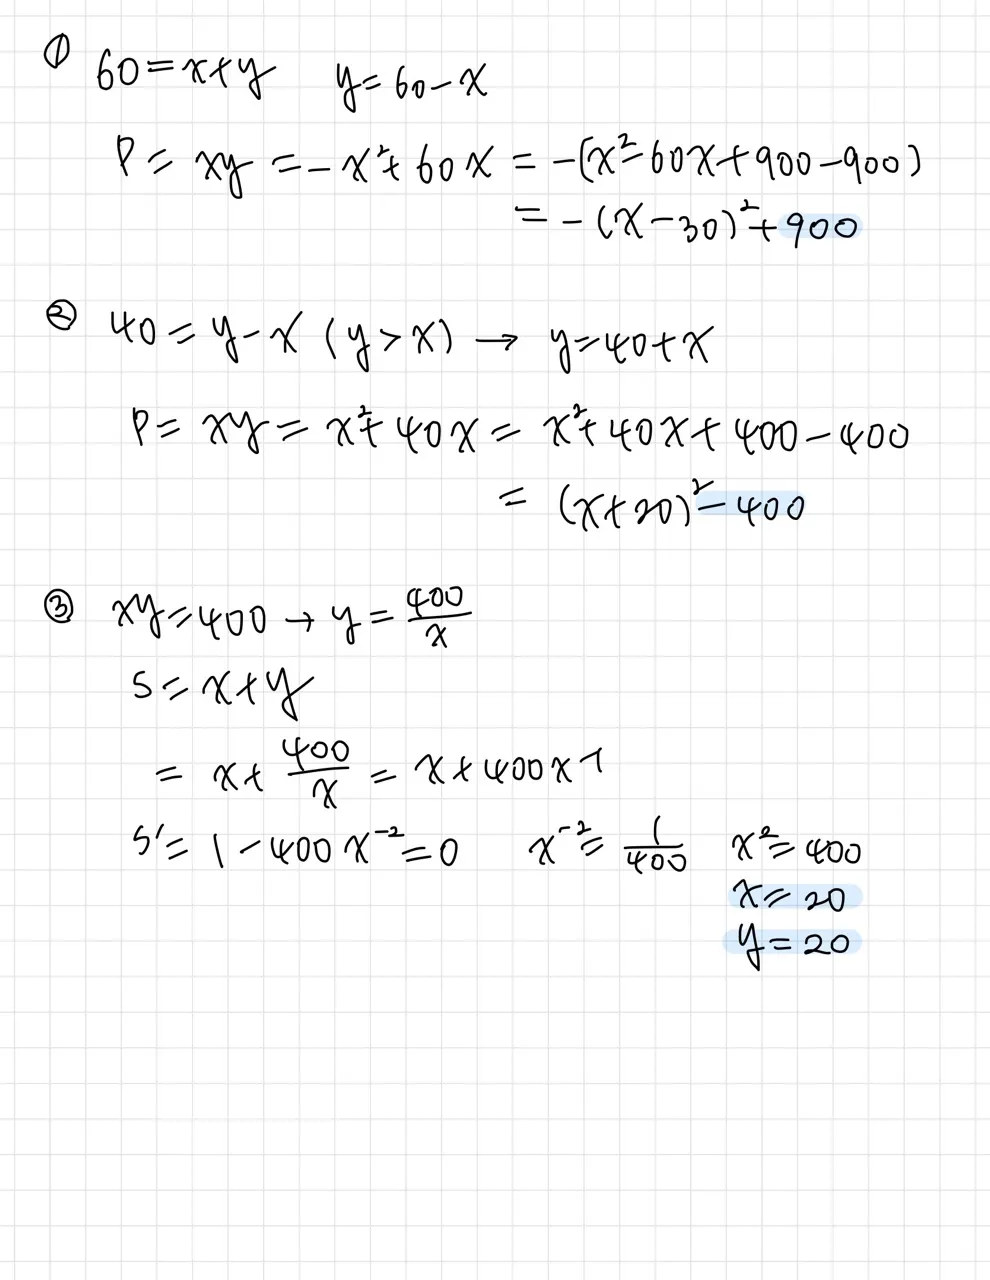 ① 60=x+y y=60-x
P= xy =-x²+60x = -(x²-60x+900-900)
= -(x-30)²+900
② 40=y-x (y>x) → y=40+x
P= xy= x²+40x= x²+40x+400-400
= (x+20)²-400
③ xy=400 → y=400/x
S=x+y
= x+400/x = x+400x⁻¹
S'= 1-400x⁻²=0 x⁻²=1/400 x²=400
x=20
y=20